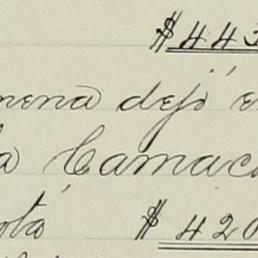 $ 443
mena dejó e
a Camac
otá $ 420